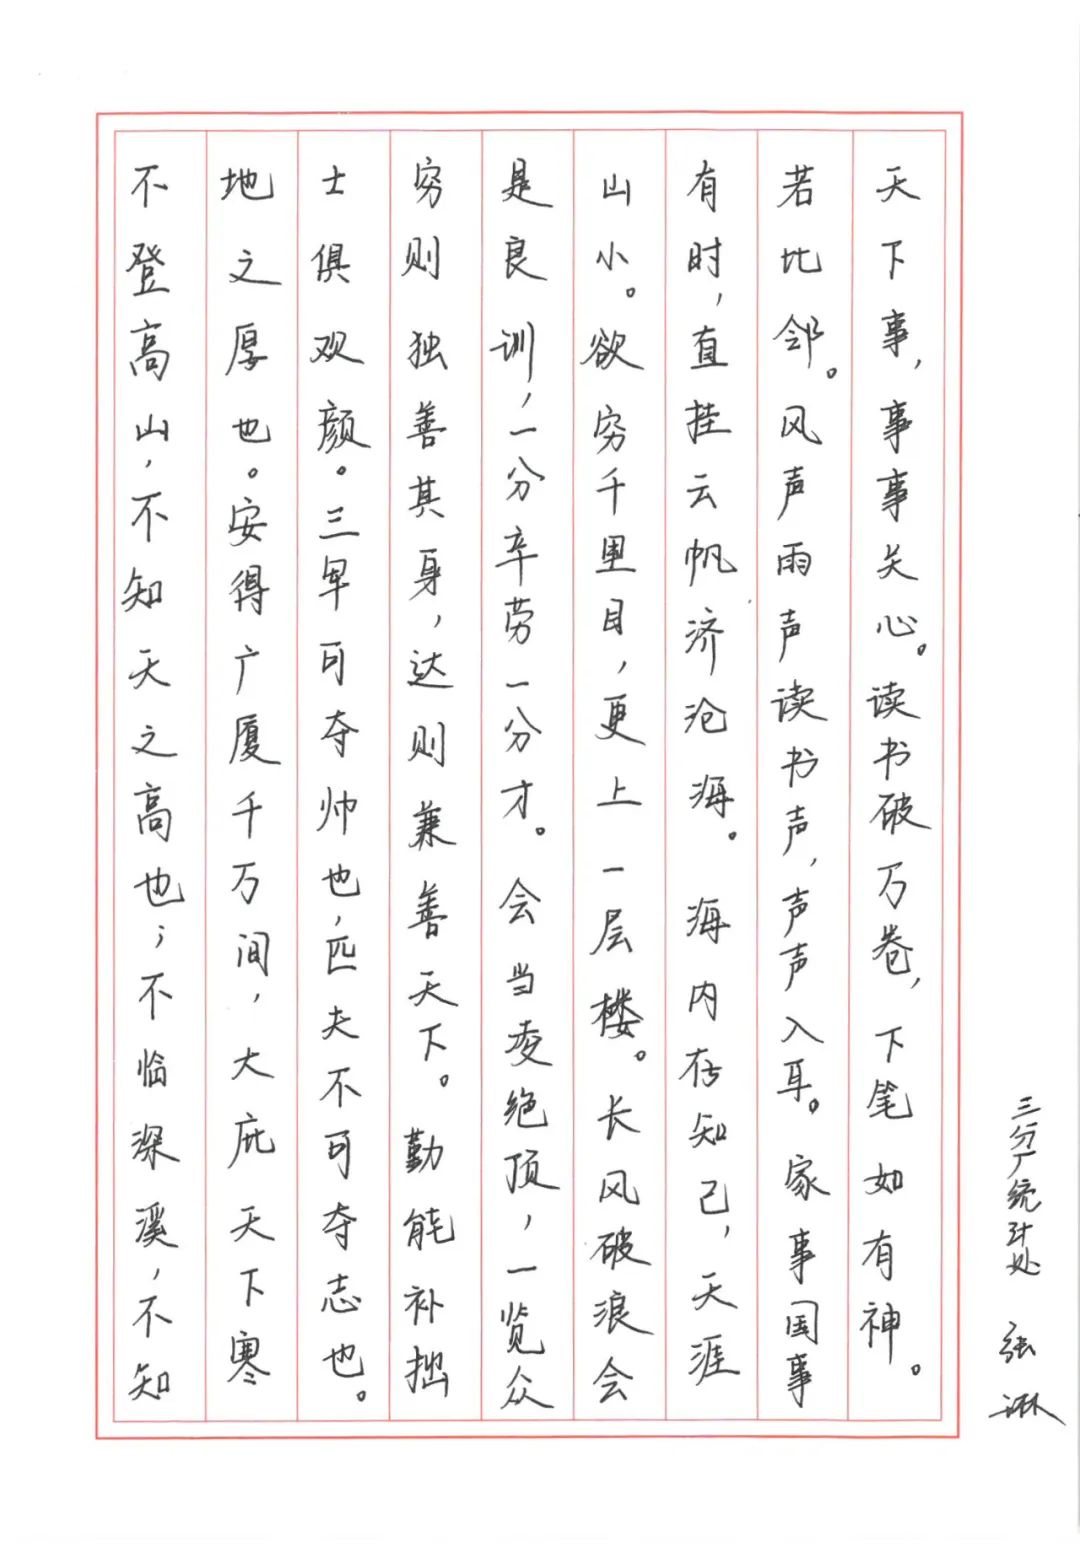 不登高山，不知天之高也；不临深溪，不知
地之厚也。安得广厦千万间，大庇天下寒
士俱观颜。三军可夺帅也，匹夫不可夺志也。
穷则独善其身，达则兼善天下。勤能补拙
是良训，一分辛劳一分才。会当凌绝顶，一览众
山小。欲穷千里目，更上一层楼。长风破浪会
有时，直挂云帆济沧海。海内存知己，天涯
若比邻。风声雨声读书声，声声入耳。家事国事
天下事，事事关心。读书破万卷，下笔如有神。
三分厂统计处 张